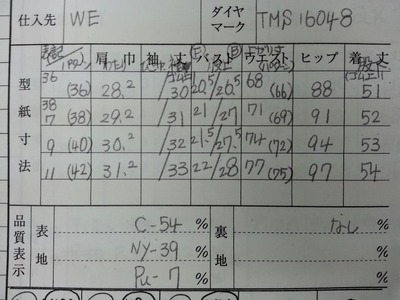 仕入先 WE ダイヤマーク TMS 16048
肩巾 袖丈 バスト ウエスト ヒップ 着丈
型紙寸法
36 (36) 28.2 /30 20.5/26.5 68 (66) 88 51
38 7 (38) 29.2 /31 21/27 71 (69) 91 52
9 (40) 30.2 /32 21.5/27.5 74 (72) 94 53
11 (42) 31.2 /33 22/28 77 (75) 97 54
品質表示 表地 C-54 % 裏地 なし %
NY-39 % %
Pu-7 % %